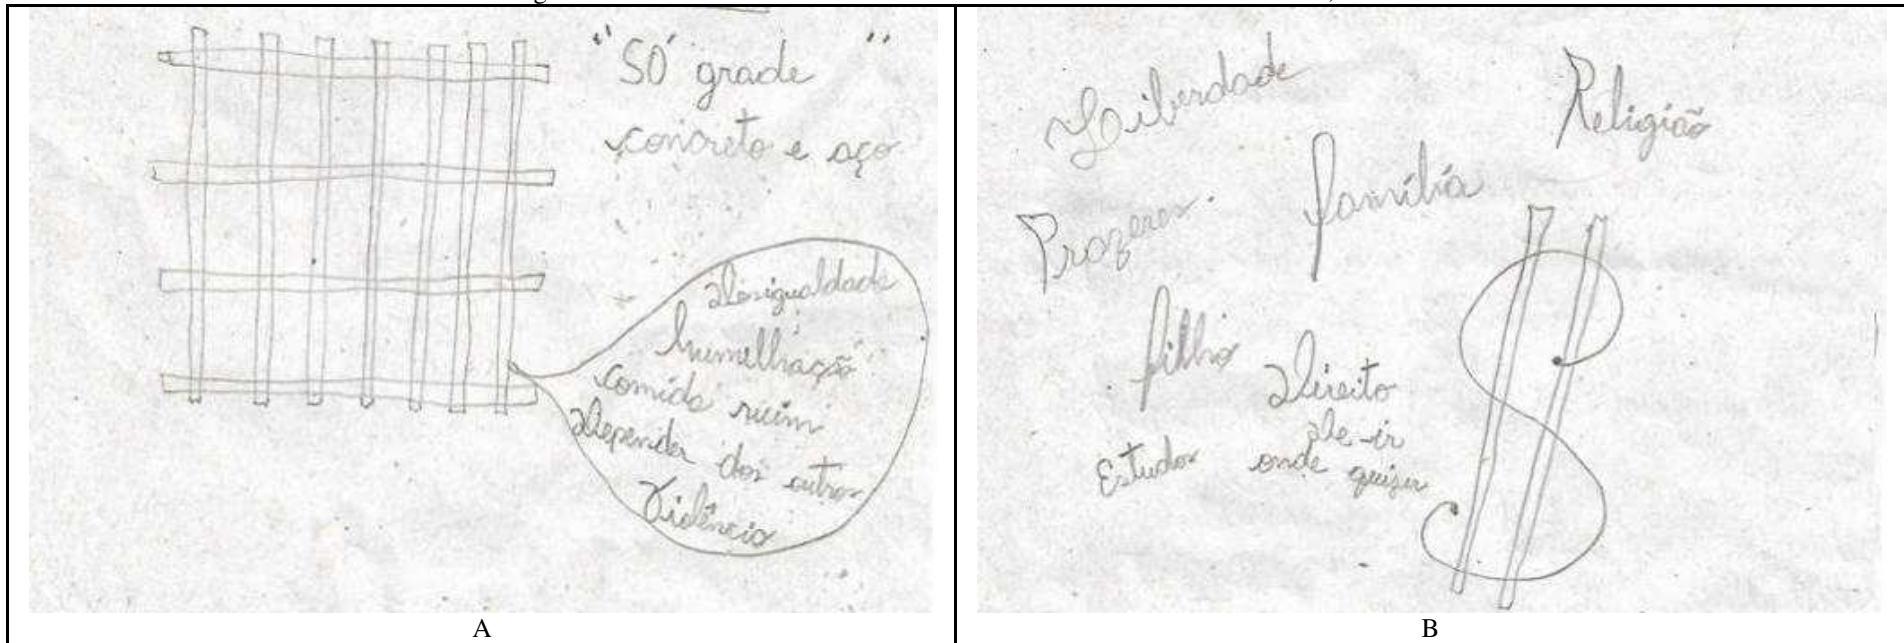 "Só grade
concreto e aço
desigualdade
humelhação
comida ruim
depender dos outros
violência
A
Liberdade
Religião
família
Prazeres.
filho
Direito
de ir
onde quiser
Estudos
B